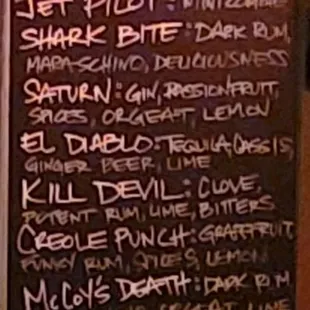 JET PILOT:
SHARK BITE: DARK RUM,
MARASCHINO, DELICIOUSNESS
SATURN: GIN, PASSIONFRUIT,
SPICES, ORGEAT, LEMON
EL DIABLO: TEQUILA, CASSIS,
GINGER BEER, LIME
KILL DEVIL: CLOVE,
POTENT RUM, LIME, BITTERS
CREOLE PUNCH: GRAPEFRUIT
FUNKY RUM, SPICES, LEMON
McCOY'S DEATH: DARK RUM
ORGEAT, LIME